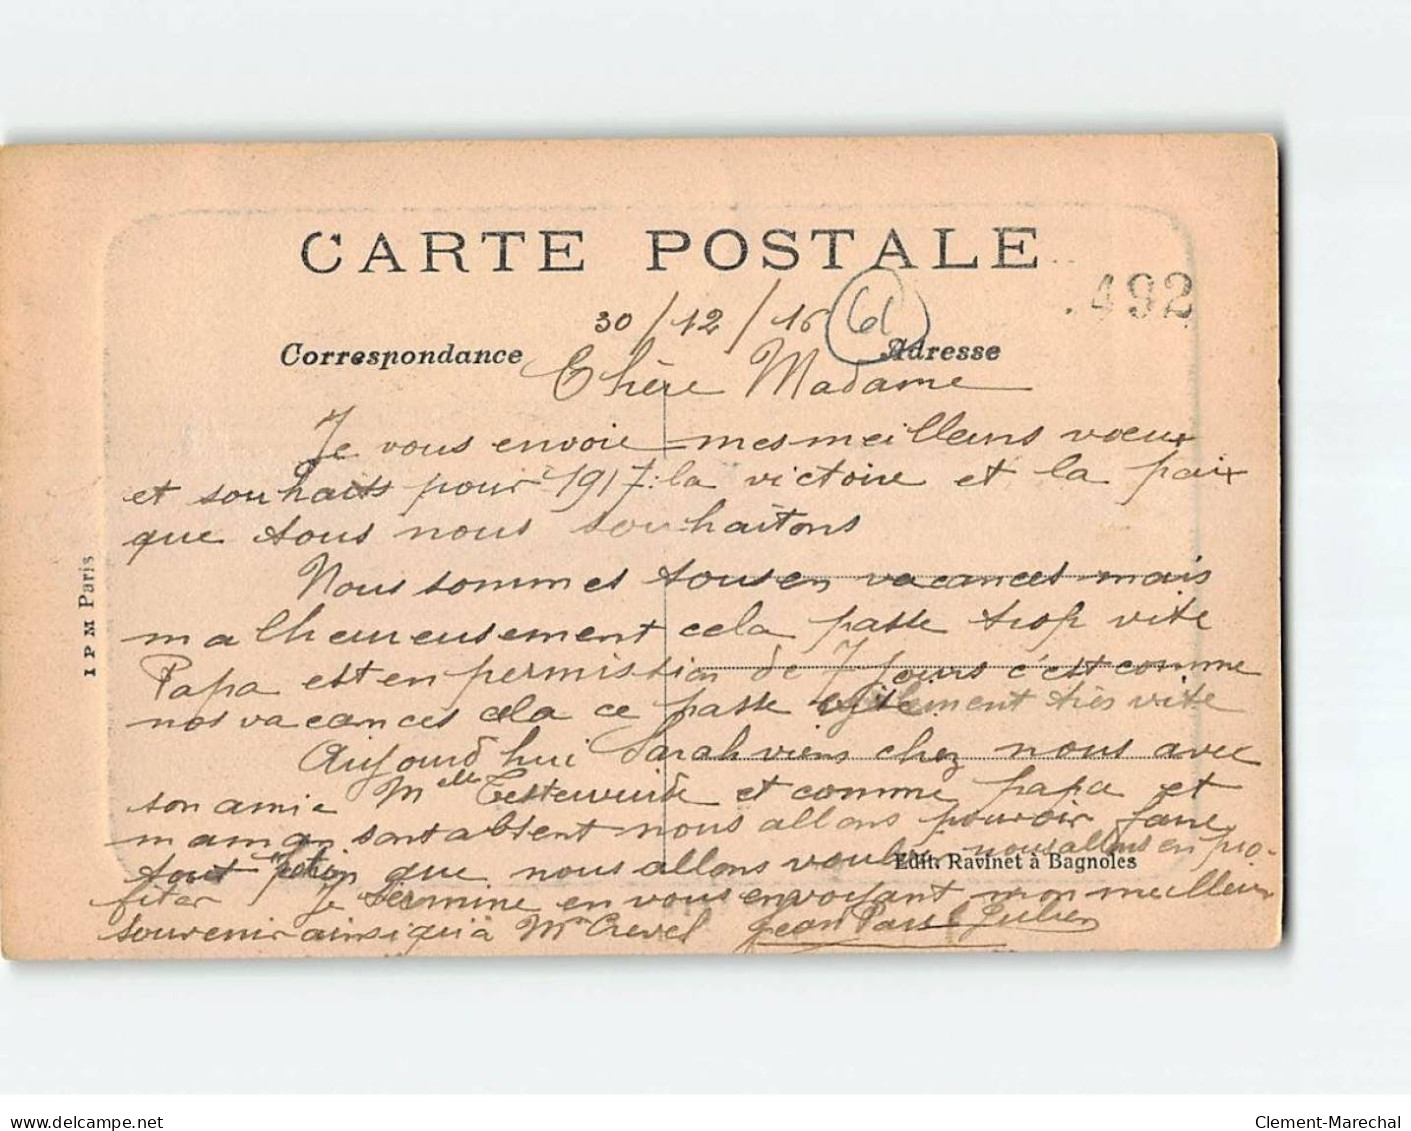 CARTE POSTALE
.492
30/12/16
61
Correspondance
Adresse
Chère Madame
Je vous envoie mes meilleurs voeux
et souhaits pour 1917: la victoire et la paix
que tous nous souhaitons
Nous sommes tous en vacances mais
malheureusement cela passe trop vite
Papa est en permission de 7 jours c'est comme
nos vacances cela ce passe également très vite
Aujourd hui Sarah viens chez nous avec
son amie Melle et comme papa et
maman sont absent nous allons pouvoir faire
tout que nous allons vouloir nous allons en pro-
fiter Je termine en vous envoyant mon meilleur
souvenir ainsi qu'à Mr Crevel Jean
Edit. Ravinet à Bagnoles
I P M Paris
www.delcampe.net
Clement-Marechal